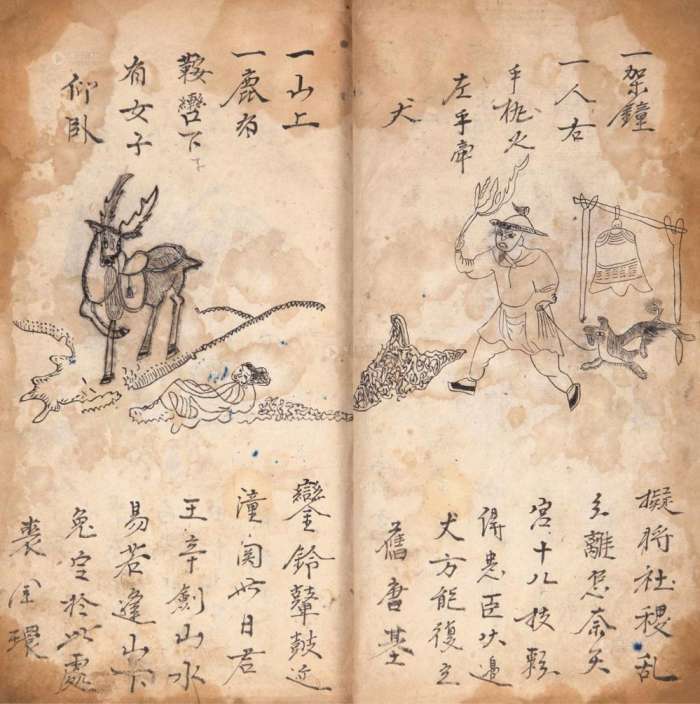 一架鐘
一人右
手桃火
左手牽
犬
擬將社稷亂
分離怎奈天
宮十八枝賴
得忠臣火邊
犬方能復立
舊唐基
一山上
一鹿有
鞍轡下
有女子
仰臥
鑾鈴鼙鼓近
潼関此日君
王幸劍山水
易若逢山下
鬼定於此處
喪金環